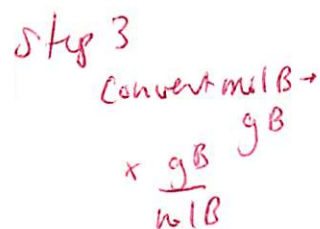 Step 3
Convert mol B →
g B
× gB
molB